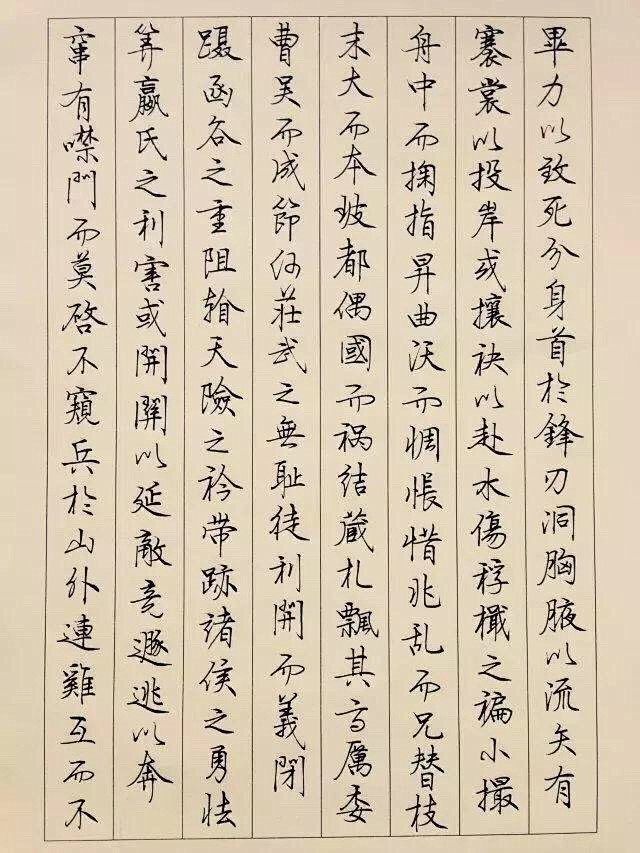 畢力以致死分身首於鋒刃洞胸腋以流矢有
褰裳以投岸或攘袂以赴水傷桴檝之褊小撮
舟中而掬指昇曲沃而惆悵惜兆乱而兄替枝
末大而本披都偶國而祸结蔵札飄其高厲委
曹吴而成節何莊武之無耻徒利開而義閉
蹑函谷之重阻看天險之衿带跡諸侯之勇怯
筭嬴氏之利害或開關以延敵竞遯逃以奔
竄有噤門而莫啓不窺兵於山外連雞互而不